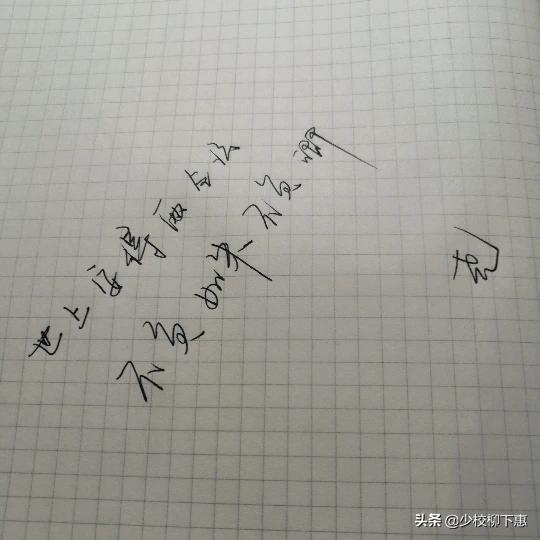 世上安得两全法
不负如来不负卿
头条 @少校柳下惠